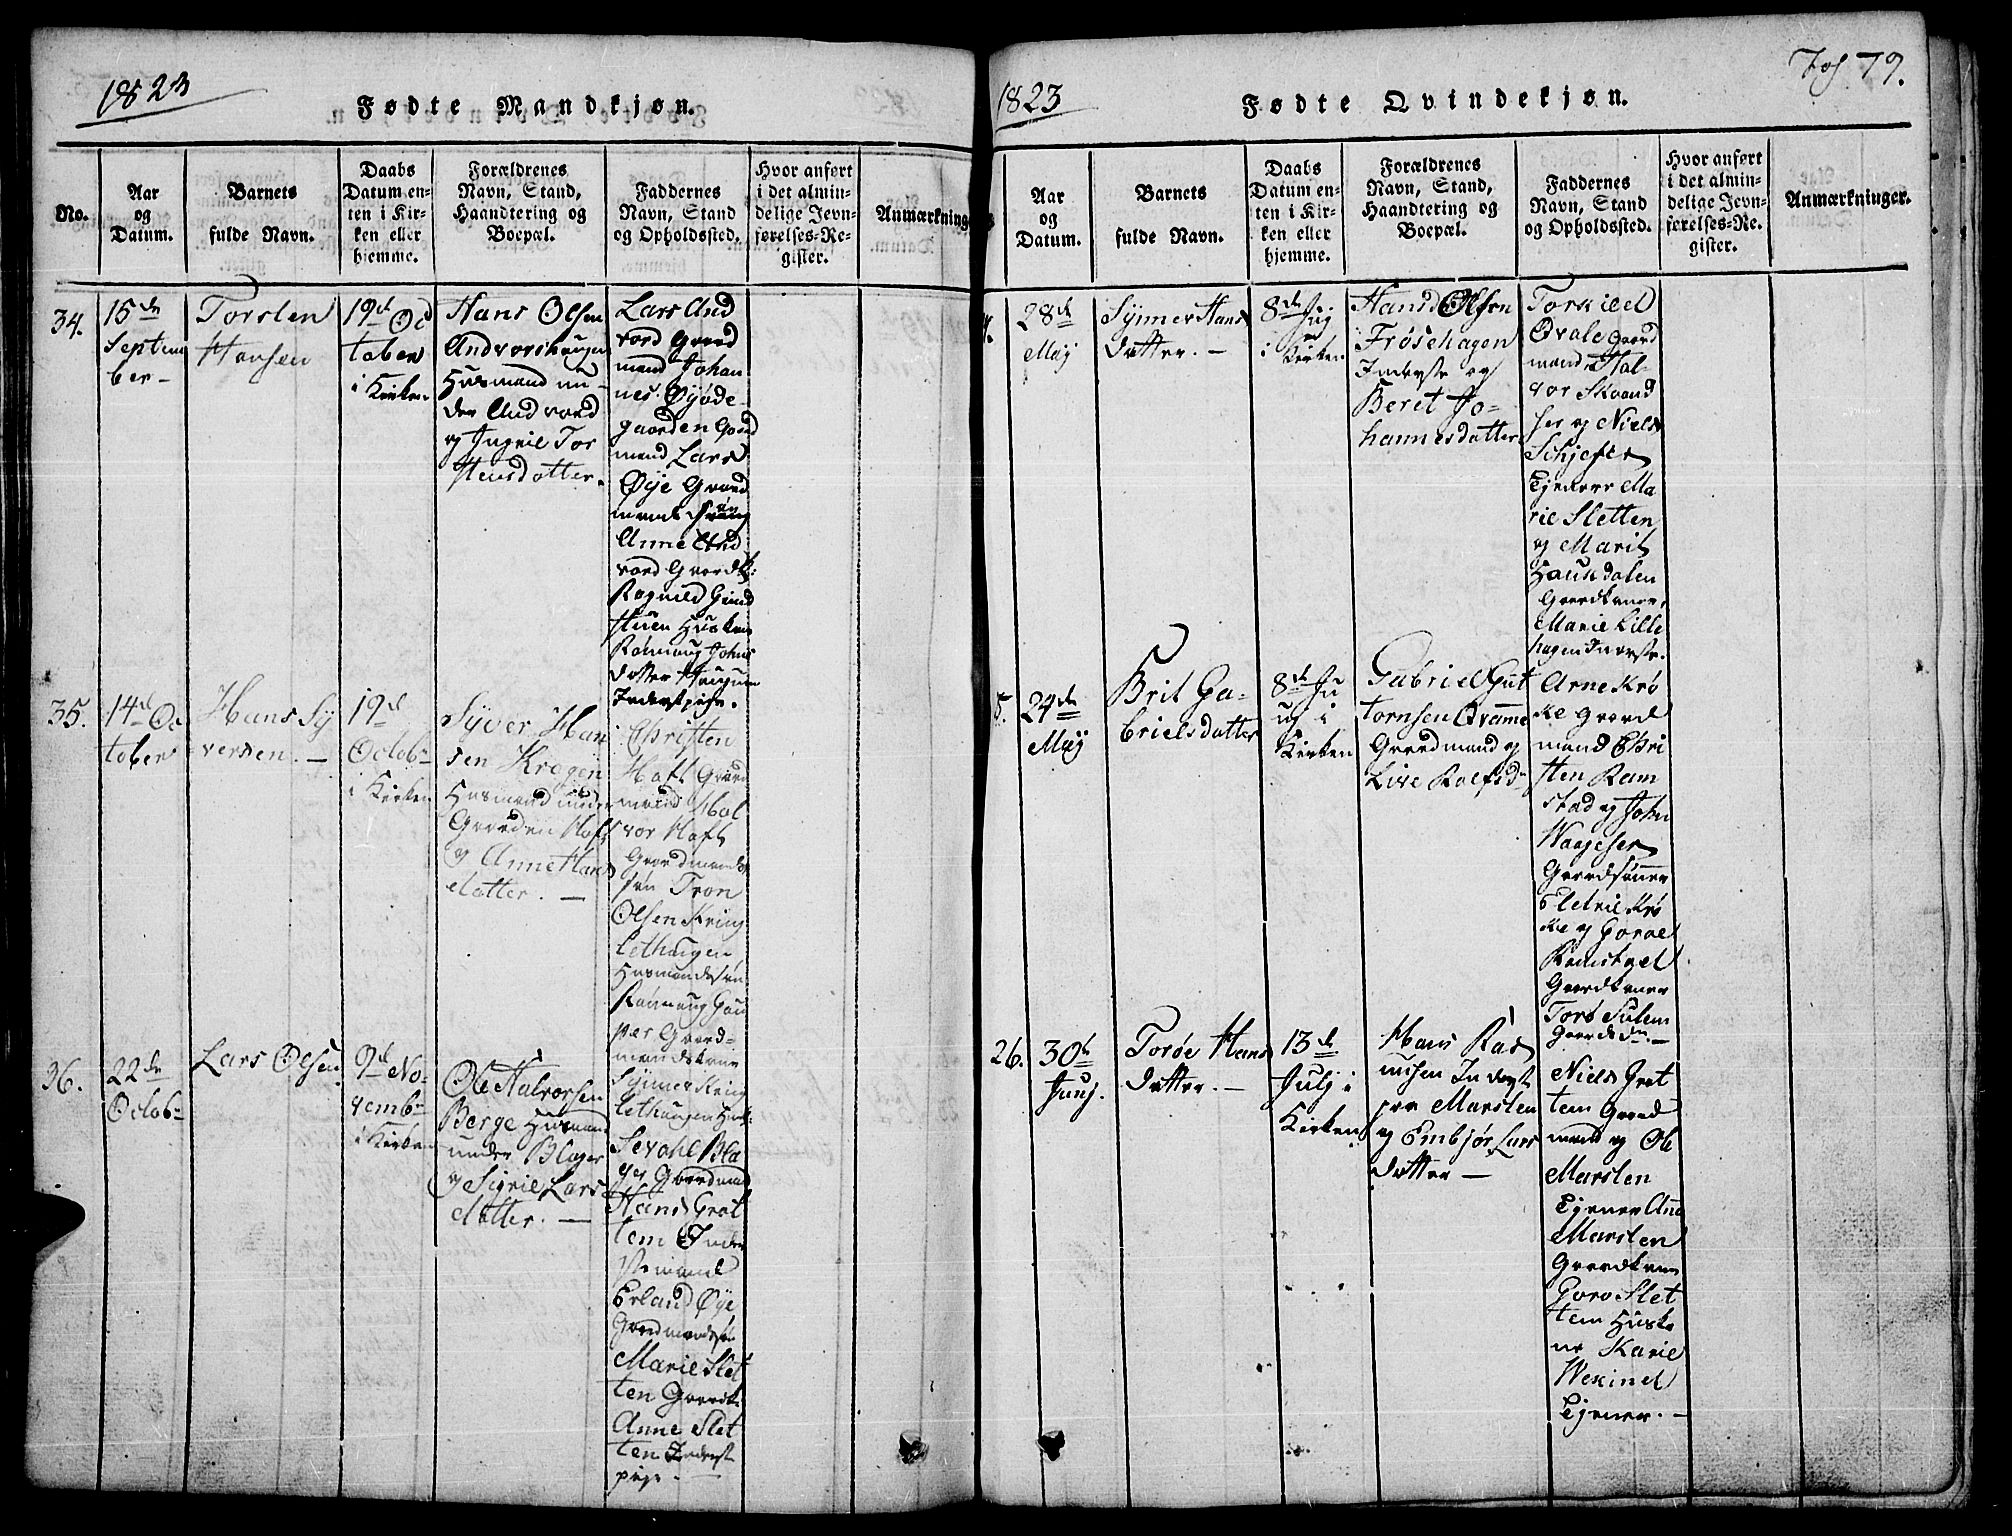 1823
Fødte Mandkjøn.
No.
Aar
og
Datum.
Barnets
fulde Navn.
Daabs
Datum en-
ten i Kir-
ken eller
hjemme.
Forældrenes
Navn, Stand,
Haandtering og
Boepæl.
Faddernes
Navn, Stand
og Opholdssted.
Hvor anført
i det almin-
delige Jevn-
førelses-Re-
gister.
Anmærkninge
34.
15de
Septem
ber
Torsten
Hansen
19d Oc
tober
i Kirken
Hans Olsen
Andvordshaugen
Husmand un-
der Andvord
og Ingril Tor
stensdatter.
Lars And
vord Gaard
mand Johan
nes Øyøde-
gaarden Gaard
mand Lars
Øye Gaard
mands
Anne And
vord Gaardk:
Ragnild
Huskone
Rønnaug Johns
datter Haugum
Inderstpige.
35.
14d Oc
tober
Hans Sy
versen. —
19d
Octob-
i Kirken
Syver Han
sen Krogen
Husmand under
Gaarden Hoft
og Anne Hans
datter. —
Christen
Hoft Gaard
mand Hal
vor Hoft
Gaardmands
søn Tron
Olsen Kring
lethaugen
Husmandssøn
Rønnaug
Gaard-
mandskone
Synner Kring
lethaugen Husk:
36.
22de
Octob-
Lars Olsen
9d No-
vemb-
i Kirken
Ole Halvorsen
Berge Husmand
under Blager
og Sigril Lars
datter. —
Sevahl Bla
ger Gaardmand
Hans Grot
tem Inder
stemand
Erland Øye
Gaardmands
Marie Slet
ten Gaardk
Anne Slet
ten Inderst
pige. —
1823
Fødte Qvindekjøn.
79.
Aar
og
Datum.
Barnets
fulde Navn.
Daabs
Datum en-
ten i Kir-
ken eller
hjemme.
Forældrenes
Navn, Stand,
Haandtering og
Boepæl.
Faddernes
Navn, Stand
og Opholdssted.
Hvor anført
i det almin-
delige Jevn-
førelses-Re-
gister.
Anmærkninger.
28d
Maj
Synner Hans
datter. —
8de Juj
i Kirken
Hans Olsen
Frøsehagen
Inderste og
Berit Jo-
hannesdatter
Torkild
Qvale Gaard
mand Hal-
vor Skaand
ser og Niels
Schjefte
Tjenere Ma
rie Sletten
og Marit
Haukdalen
Gaardkoner,
Marie Lille
hagen Inderste.
24de
Maj
Brit Ga-
brielsdatter
8d Ju
nj i
Kirken
Gabriel Gut
tormsen Qvamme
Gaardmand og
Live Rolfsd-
Arne Krø
ke Gaard
mand Chri
sten Ram
stad og John
Waageser
Gaardsønner
Eldrie Krø
ke og Goroe
Ramstad
Gaardkoner
Torø Sulem
Gaardsd-.
26.
30d
Junj.
Torøe Hans
datter. —
13de
Julj i
Kirken
Hans Ras
musen Inderst
paa Marsten
og Embjør Lars
datter —
Niels Grot
tem Gaard
mand og Ole
Marsten
Tjener Ane
Marsten
Gaardkone
Goro Slet
tem Husko
ne Karie
Tjener. —